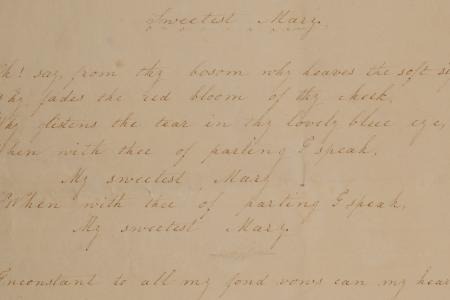 Sweetest Mary.
Oh! say, from thy bosom why heaves the soft si
Why fades the red bloom of thy cheek,
Why glistens the tear in thy lovely blue eye,
When with thee of parting I speak.
My sweetest Mary
When with thee of parting I speak,
My sweetest Mary.
Inconstant to all my fond vows can my hear